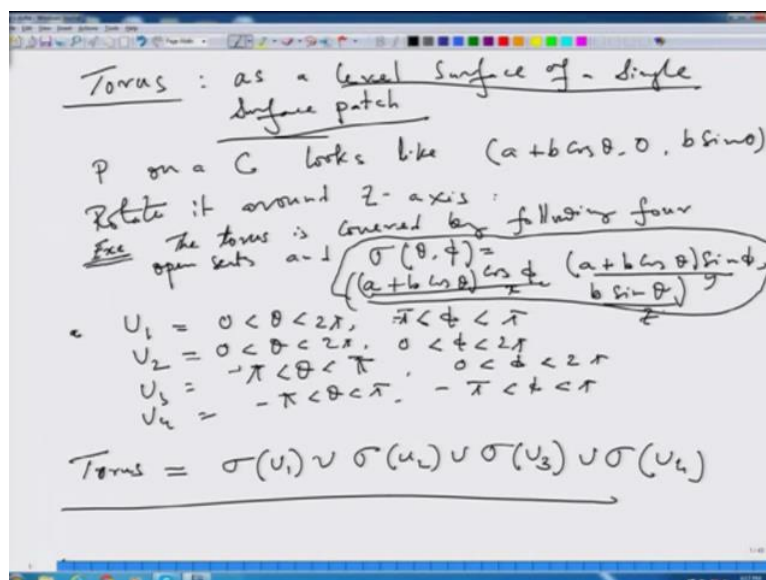 Torus : as a level surface of a single
surface patch
P on a C looks like (a + b cos θ, 0, b sin θ)
Rotate it around Z-axis :
Exe The torus is covered by following four
open sets and σ(θ, ϕ) =
((a + b cos θ) cos ϕ, (a + b cos θ) sin ϕ,
x b sin θ) y
z
U₁ = 0 < θ < 2π, -π < ϕ < π
U₂ = 0 < θ < 2π, 0 < ϕ < 2π
U₃ = -π < θ < π, 0 < ϕ < 2π
U₄ = -π < θ < π, -π < ϕ < π
Torus = σ(U₁) ∪ σ(U₂) ∪ σ(U₃) ∪ σ(U₄)